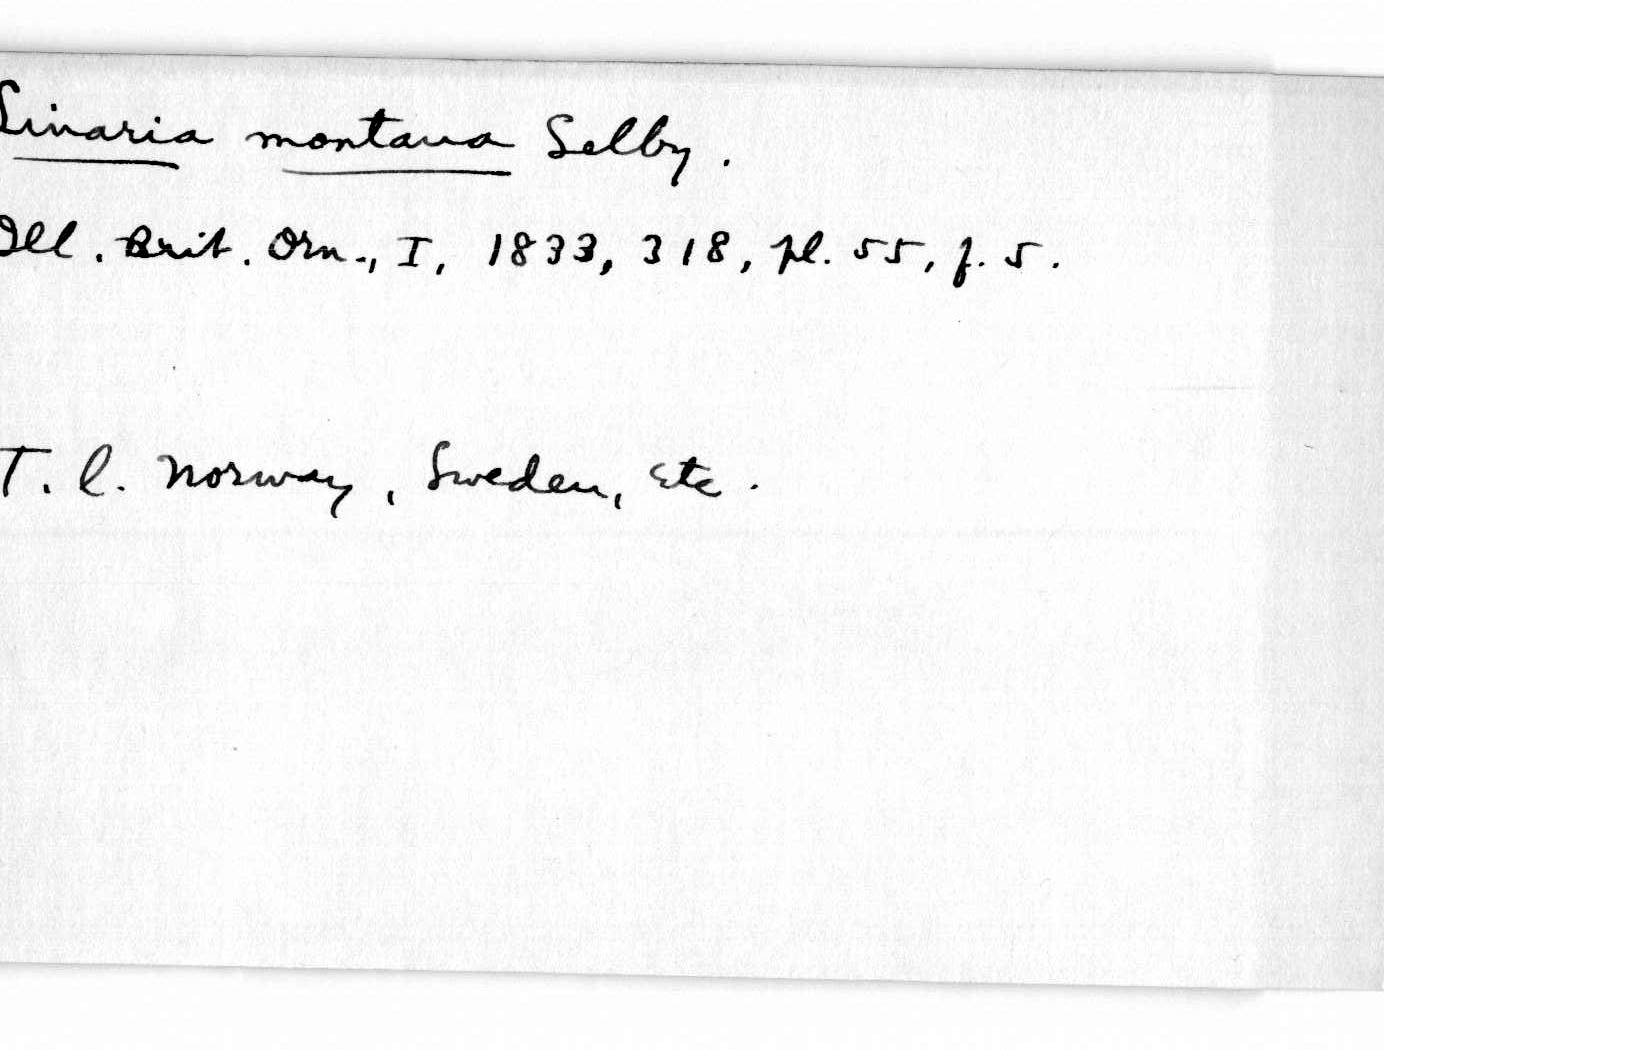 Linaria montana Selby.
Ill. Brit. Orn., I, 1833, 318, pl. 55, f. 5.
T. l. Norway, Sweden, Etc.